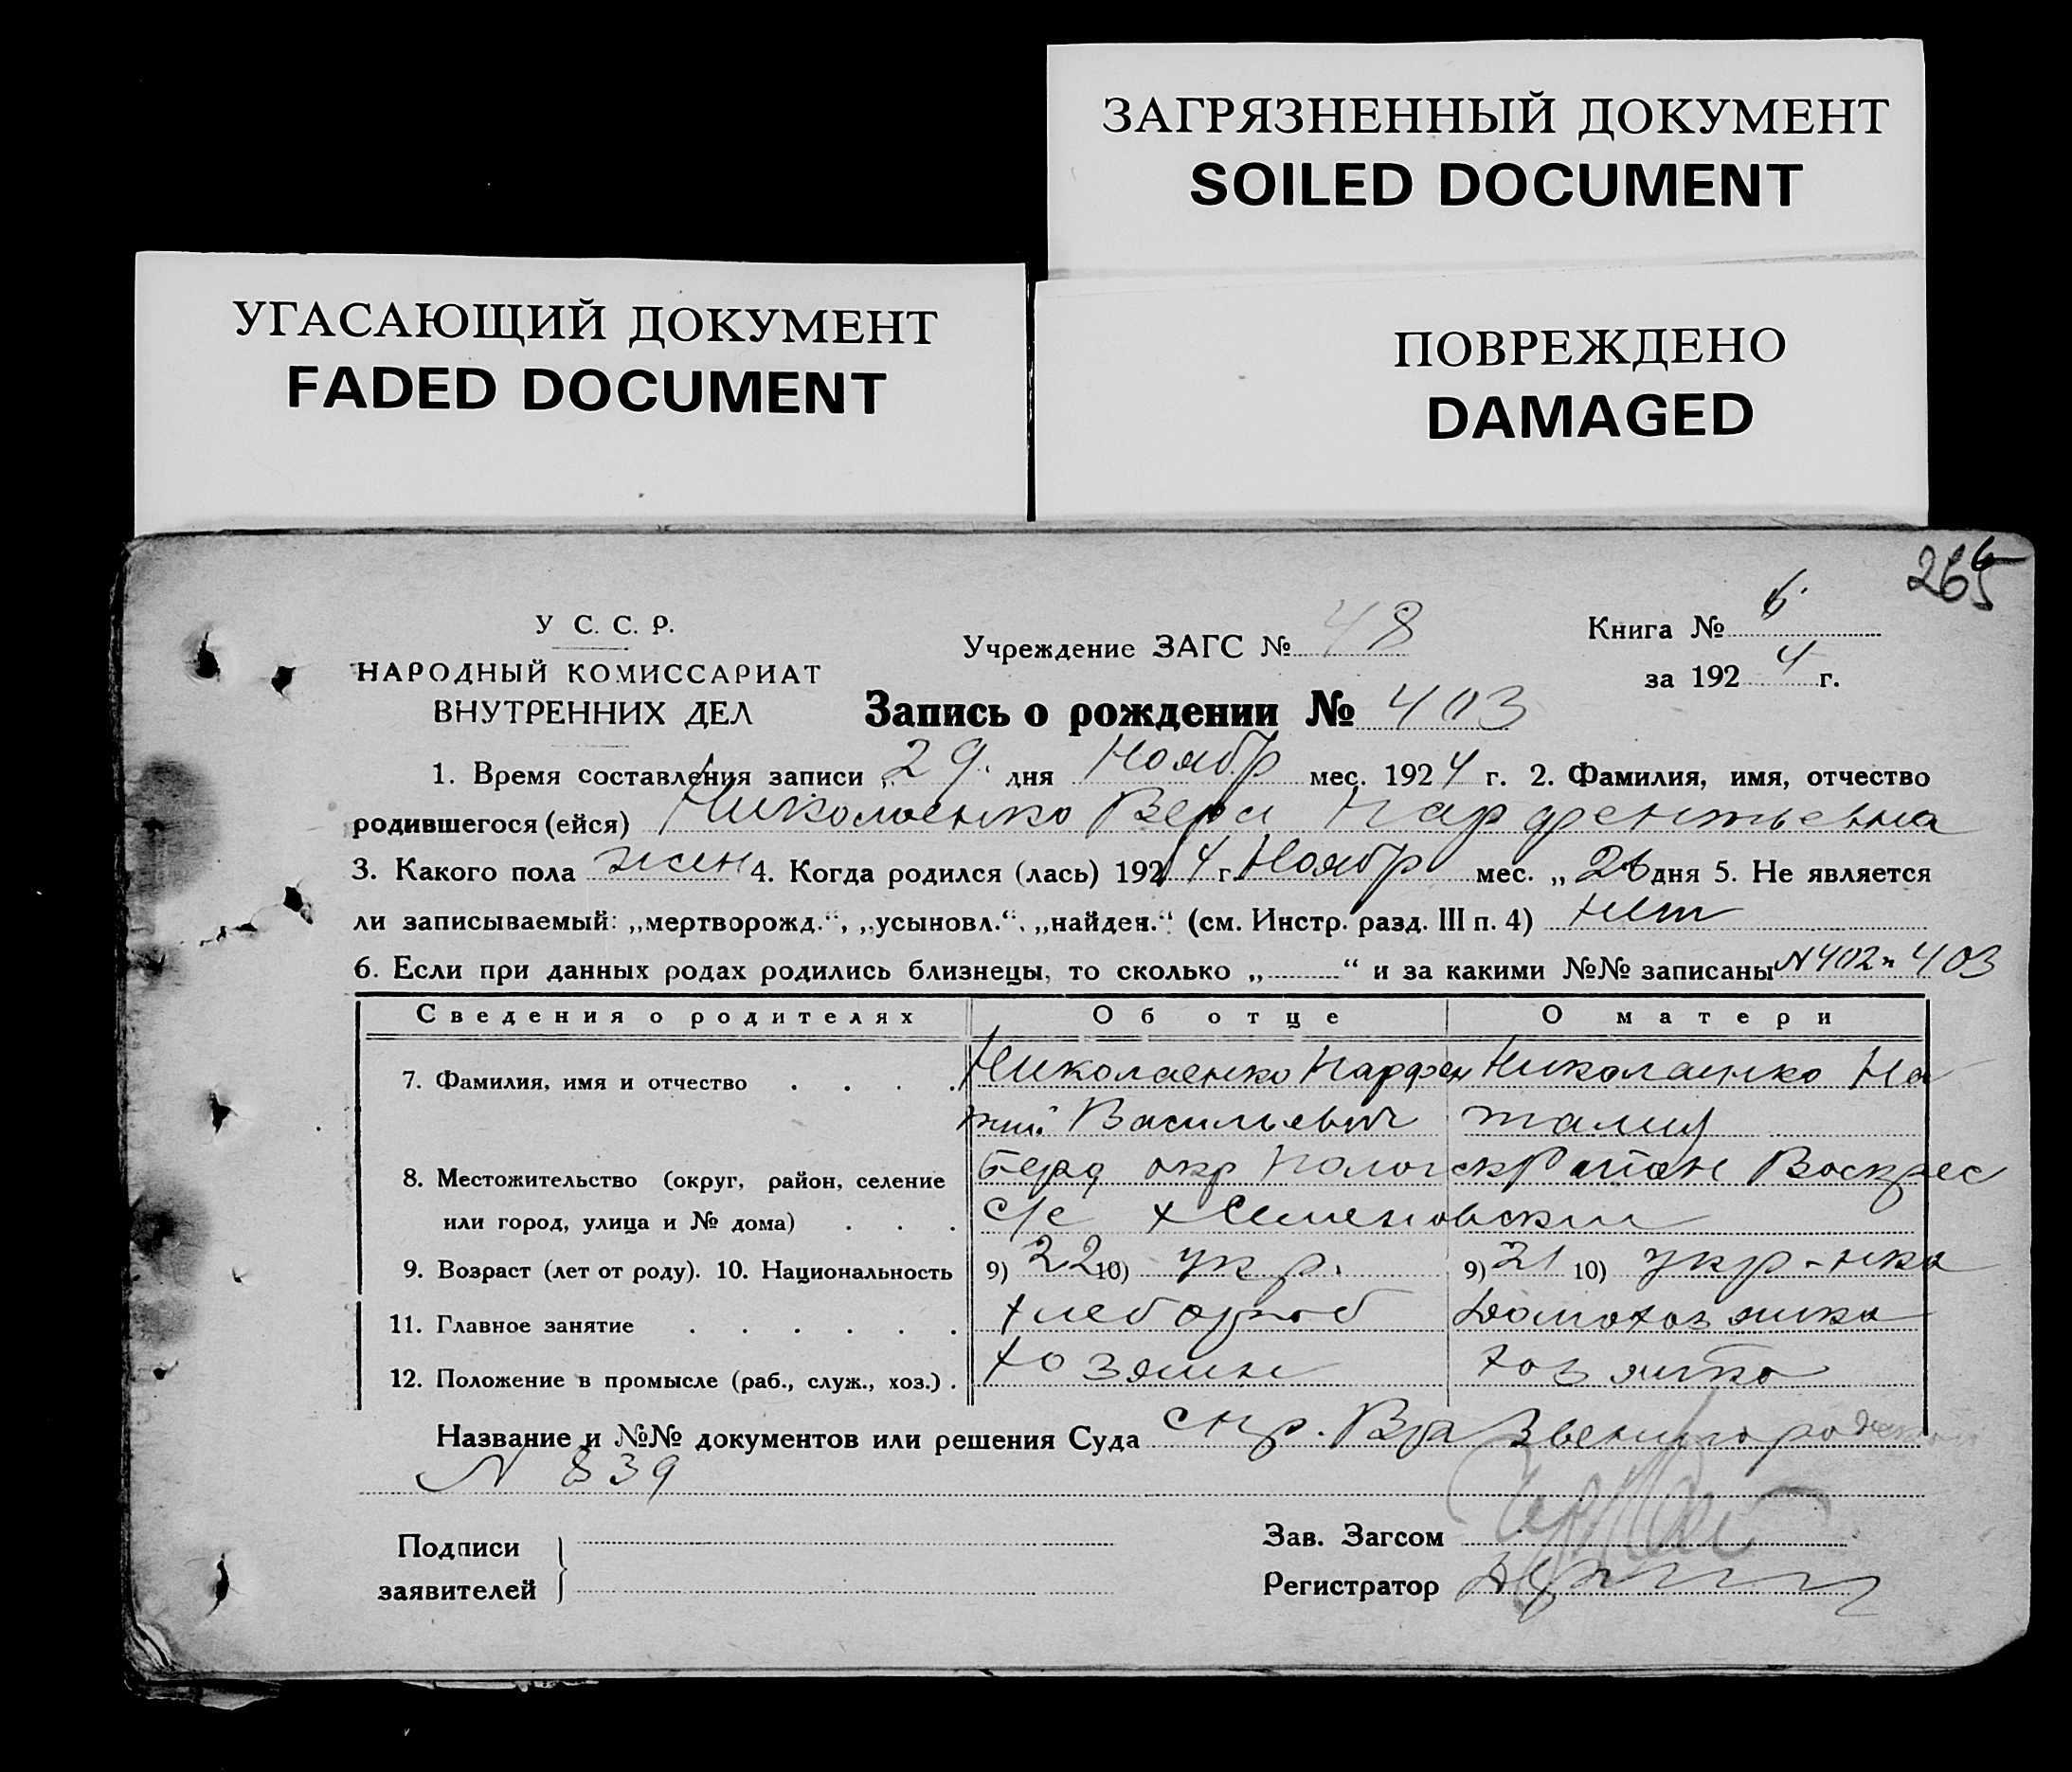 ЗАГРЯЗНЕННЫЙ ДОКУМЕНТ
SOILED DOCUMENT
УГАСАЮЩИЙ ДОКУМЕНТ
FADED DOCUMENT
ПОВРЕЖДЕНО
DAMAGED
У С. С. Р.
НАРОДНЫЙ КОМИССАРИАТ
ВНУТРЕННИХ ДЕЛ
Учреждение ЗАГС № 48
Книга № 6
за 1924 г.
Запись о рождении № 403
1. Время составления записи 29 дня Ноябр мес. 1924 г. 2. Фамилия, имя, отчество
родившегося (ейся) Николаенко Вера Парфентьевна
3. Какого пола жен 4. Когда родился (лась) 1924 г. Ноябр мес. „ 26 дня 5. Не является
ли записываемый: „мертворожд.“, „усыновл.“, „найден.“ (см. Инстр. разд. III п. 4) нет
6. Если при данных родах родились близнецы, то сколько „ “ и за какими №№ записаны N 402 и 403
Сведения о родителях Об отце О матери
7. Фамилия, имя и отчество . . . . Николаенко Парфен Николаенко На
тий Васильевич талия
8. Местожительство (округ, район, селение Берд окр Пологск Район Воскрес
или город, улица и № дома) . . . с/с х Семеновский
9. Возраст (лет от роду). 10. Национальность 9) 22 10) укр. 9) 21 10) укр-нка
11. Главное занятие . . . . . . хлебороб Домохозяйка
12. Положение в промысле (раб., служ., хоз.) . хозяин хозяйка
Название и №№ документов или решения Суда спр. Вра Звенигородской
N 839
Подписи
заявителей
Зав. Загсом
Регистратор